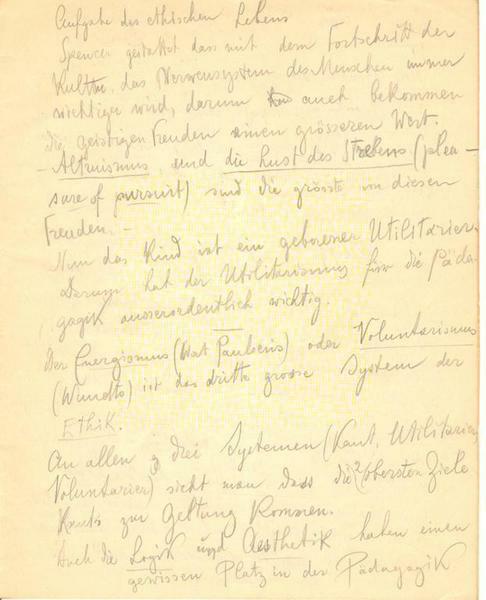 Aufgabe des ethischen Lebens
Spencer gestattet dass mit dem Fortschritt der
Kultur, das Nervensystem des Menschen immer
wichtiger wird, darum auch bekommen
die geistigen Freuden einen grösseren Wert.
- Altruismus, und die Lust des Strebens (plea-
sure of pursuit) sind die grösste von diesen
Freuden. -
Nun das Kind ist ein geborener Utilitarier.
Darum hat der Utilitarismus für die Päda-
gagik ausserordentlich wichtig.
Der Energismus (Paulsens) oder Voluntarismus
(Wundts) ist das dritte grosse System der
Ethik.
An allen drei Systemen (Kant, Utilitarier,
Voluntarier) sieht man dass die 2 obersten Ziele
Kants zur Geltung kommen.
Auch die Logik und Aesthetik haben einen
gewissen Platz in der Pädagogik